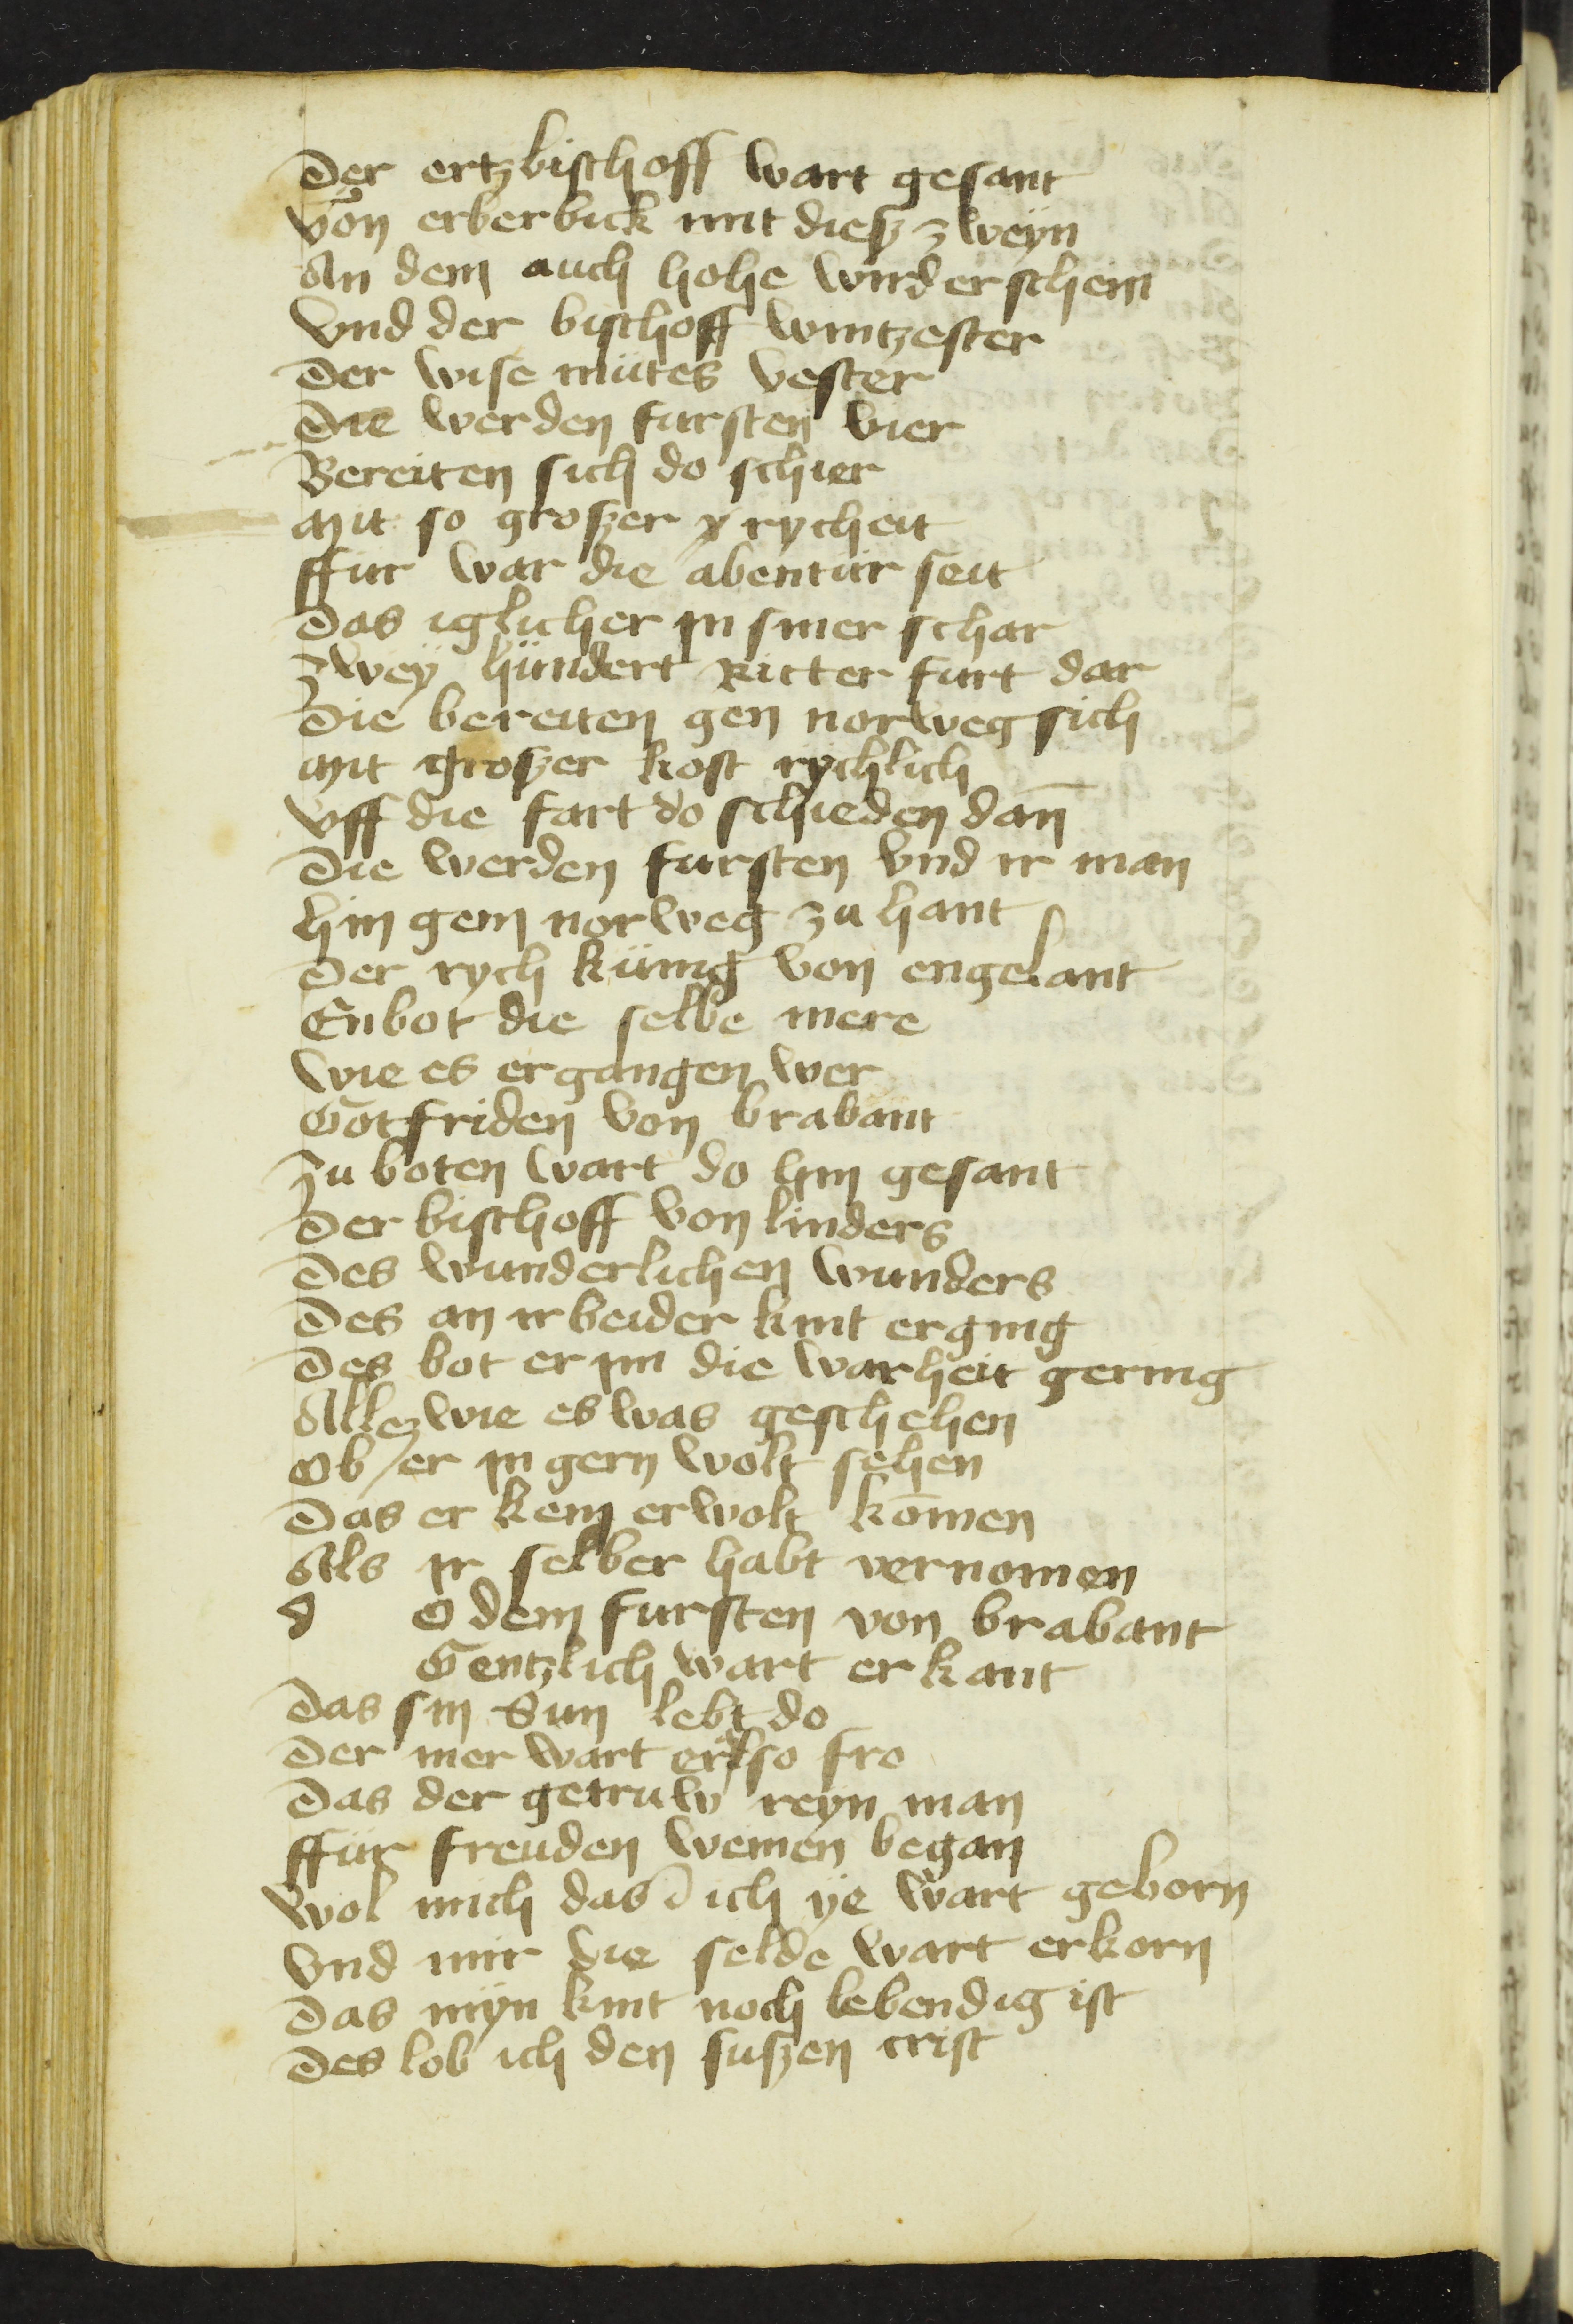 Der ertzbischoff wart gesant
von erberbick mit diesz zweyn
An dem auch hohe wird erschein
Vnd der bischoff wintzester
Der wise mütes vester
Die werden fursten vier
Bereiten sich do schier
Mit so groszer rycheit
ffur war die abentür seit
Das iglicher in siner schar
Zwey hündert Ritter furt dar
Die bereiten gen norweg sich
Mit groszer kost rychlich
vff die fart do schieden dan̄
Die werden fursten vnd ir man
hin gein norweg zu hant
Der rych künig von engelant
Enbot die selbe mere
wie es ergangen wer
Gotfriden von brabant
Zu boten wart do hin gesant
Der bischoff von linders
Des wunderlichen wunders
Des an ir beider kint erging
Des bot er im die warheit gering
Allez wie es was geschehen
Ob er in gern wolt sehen
Das er kem er wolt kōmen
Als ir selber habt vernomen
d O dem fursten von brabant
Gentzlich wart erkant
Das sin Sun lebt do
Der mer wart er so fro
Das der getruw reyn man
ffür freuden weinen began
Wol mich das ich ye wart geborn
Vnd mir die selde wart erkorn
Das myn kint noch lebendig ist
Des lob ich den suszen crist